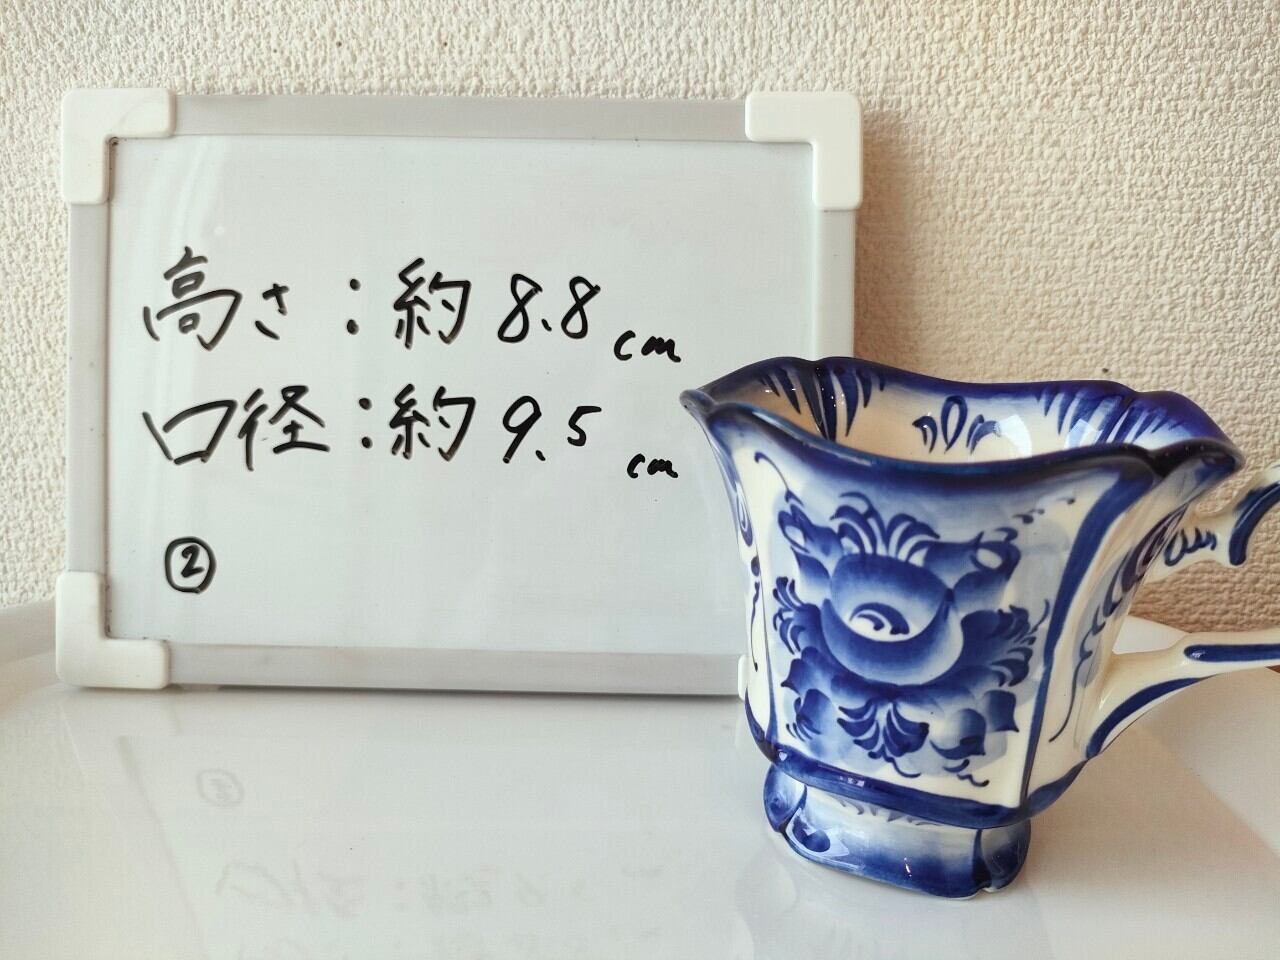 高さ：約 8.8 cm
口径：約 9.5 cm
②